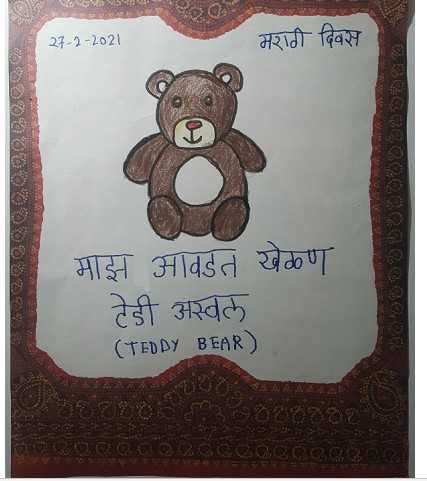 27-2-2021
मराठी दिवस
माझ आवडत खेळण
टेडी अस्वल
(TEDDY BEAR)